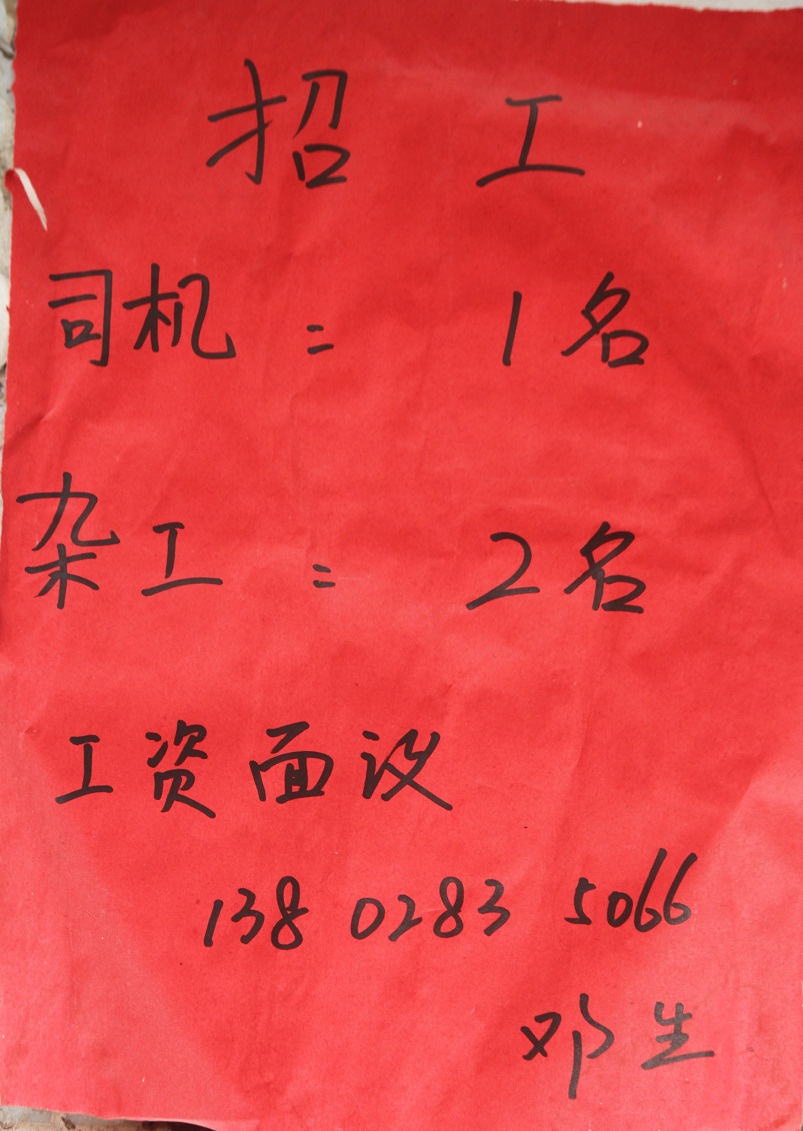 招工
司机： 1名
杂工： 2名
工资面议
138 0283 5066
邓生